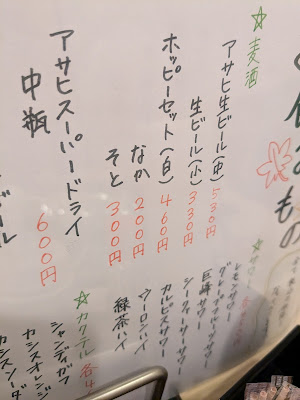 のみもの
☆麦酒
アサヒ生ビール(中) 530円
生ビール(小) 330円
ホッピーセット(白) 460円
なか 200円
そと 300円
アサヒスーパードライ
中瓶 600円
レモンサワー
グレープフルーツサワー
巨峰サワー
シークヮーサーサワー
カルピスサワー
ウーロンハイ
緑茶ハイ
☆カクテル各4
シャンディガフ
カシスオレンジ
カシスソーダ